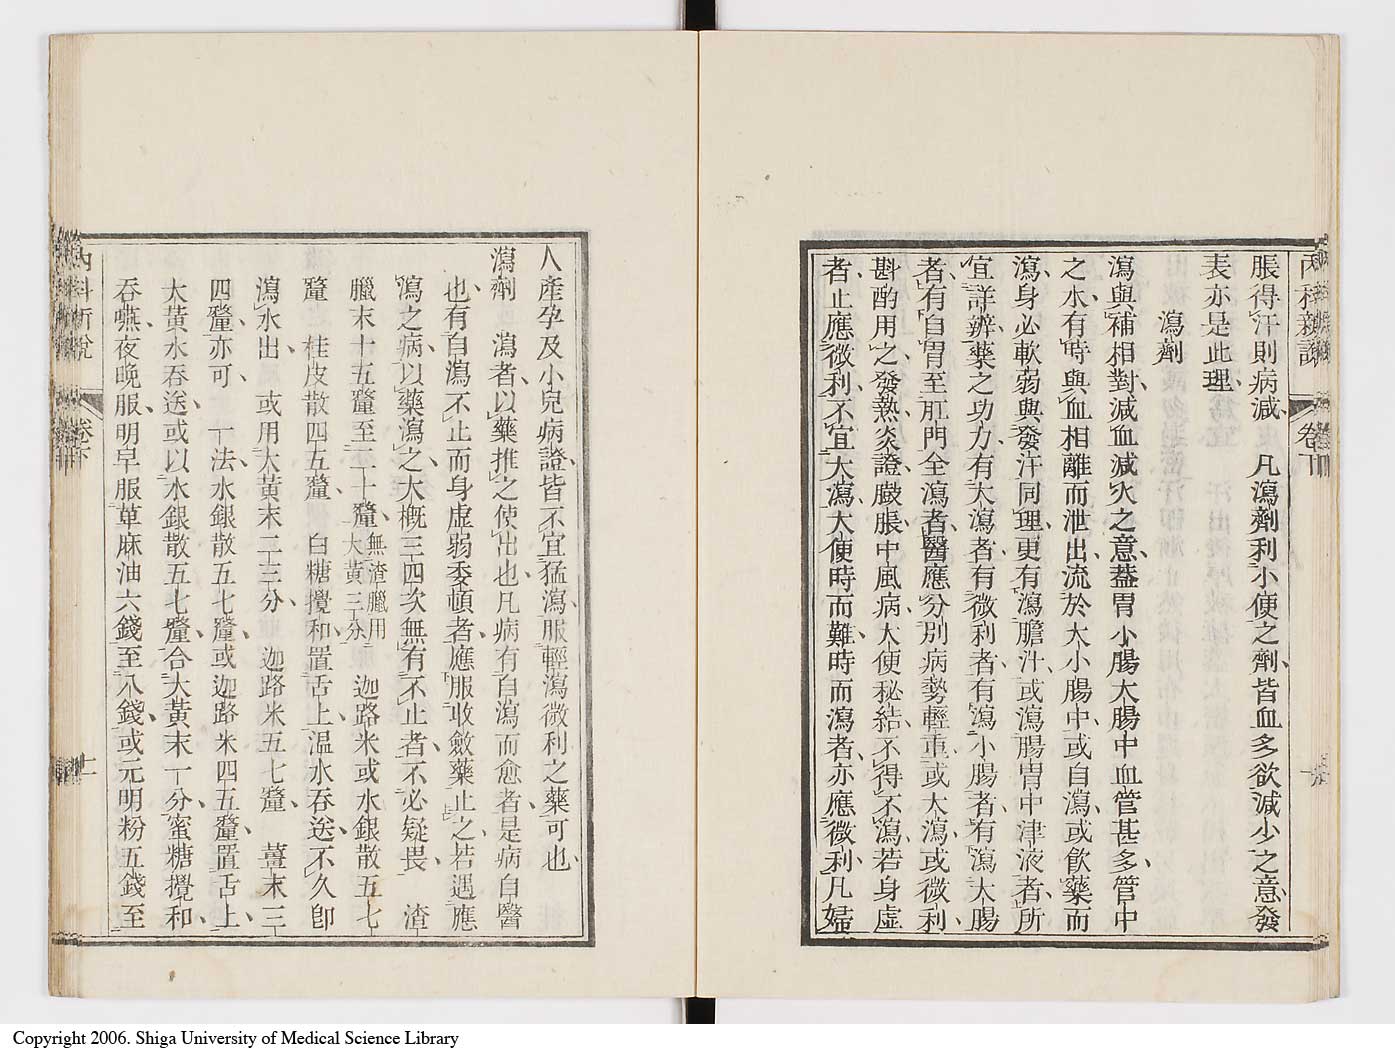 內科新說
卷下
脹得汗則病減 凡瀉劑利小便之劑皆血多欲減少之意發
表亦是此理
瀉劑
瀉與補相對減血減火之意蓋胃小腸大腸中血管甚多管中
之水有時與血相離而泄出流於大小腸中或自瀉或飲藥而
瀉身必軟弱與發汗同理更有瀉膽汁或瀉腸胃中津液者所
宜詳辨藥之功力有大瀉者有微利者有瀉小腸者有瀉大腸
者有自胃至肛門全瀉者醫應分別病勢輕重或大瀉或微利
斟酌用之發熱炎證臌脹中風病大便秘結不得不瀉若身虛
者止應微利不宜大瀉大便時而難時而瀉者亦應微利凡婦
人產孕及小兒病證皆不宜猛瀉服輕瀉微利之藥可也
瀉劑 瀉者以藥推之使出也凡病有自瀉而愈者是病自醫
也有自瀉不止而身虛弱委頓者應服收斂藥止之若遇應
瀉之病以藥瀉之大概三四次無有不止者不必疑畏 渣
臘末十五釐至二十釐無渣臘用大黃三分 迦路米或水銀散五七
釐 桂皮散四五釐 白糖攪和置舌上溫水吞送不久卽
瀉水出 或用大黃末二三分 迦路米五七釐 薑末三
四釐亦可 一法水銀散五七釐或迦路米四五釐置舌上
大黃水吞送或以水銀散五七釐合大黃末一分蜜糖攪和
吞嚥夜晚服明早服草麻油六錢至八錢或元明粉五錢至
內科新說
卷下
十一
Copyright 2006. Shiga University of Medical Science Library